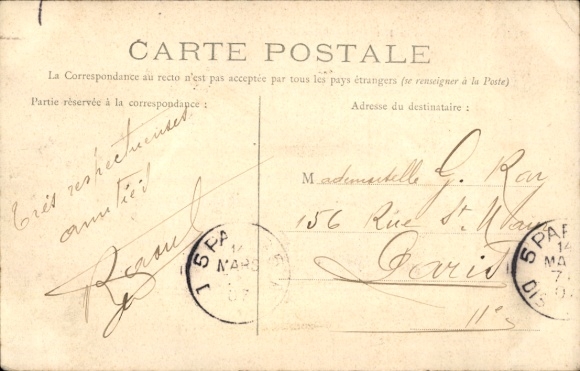 CARTE POSTALE
La Correspondance au recto n'est pas acceptée par tous les pays étrangers (se renseigner à la Poste)
Partie réservée à la correspondance :
Très respectueuses
amitiés
Raoul
Adresse du destinataire :
Mademoiselle G. Roy
156 Rue St. Maur
Paris
11e
5 PA
14
MARS
07
5 PAR
14
MA
7
DIS